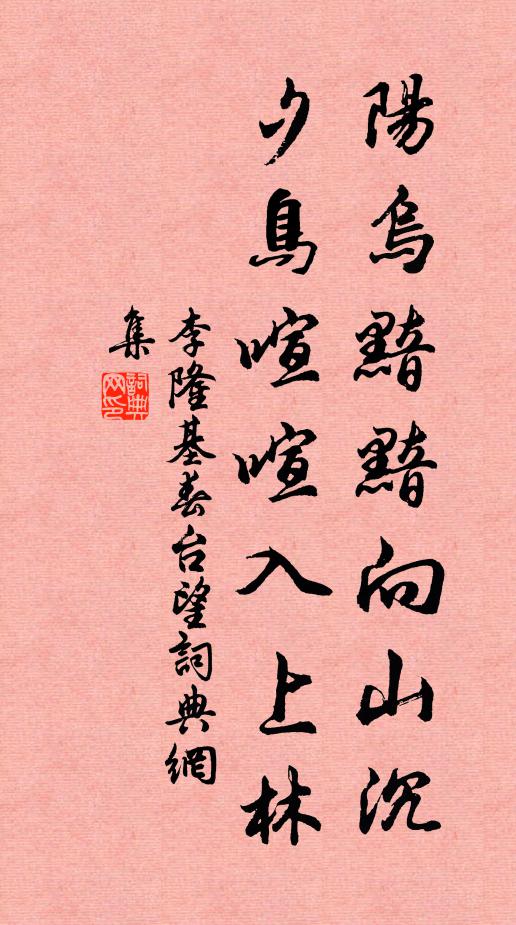 陽烏黯黯向山沉
夕鳥喧喧入上林
李隆基春台望詞典網
集
詞典網印